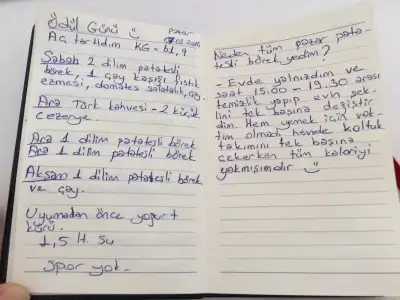 Ödül Günü
pazar
Aç tartıldım KG = 61,9
Sabah 2 dilim patatesli
börek, 1 çay kaşığı fıstık
ezmesi, domates salatalık, çay.
Ara Türk kahvesi - 2 küçük
cezerye.
Ara 1 dilim patatesli börek
Ara 1 dilim patatesli börek
Akşam 1 dilim patatesli börek
ve çay.
Uyumadan önce yogurt
kürü.
1,5 lt. su
Spor yok.
Neden tüm pazar pata-
tesli börek yedim?
- Evde yalnızdım ve
saat 15:00 - 19:30 arası
temizlik yapıp evin şek-
lini tek başına değiştir
dim. Hem yemek için vak-
tim olmadı hemde koltuk
takımını tek başına
çekerken tüm kaloriyi
yakmışımdır